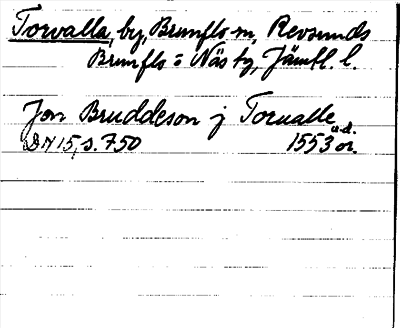 Torvalla, by, Brunflo sn, Revsunds
Brunflo o Näs tg, Jämtl. l.
Jon Bruddeson j Torualle
DN 15, s. 750 1553 u.d. or.